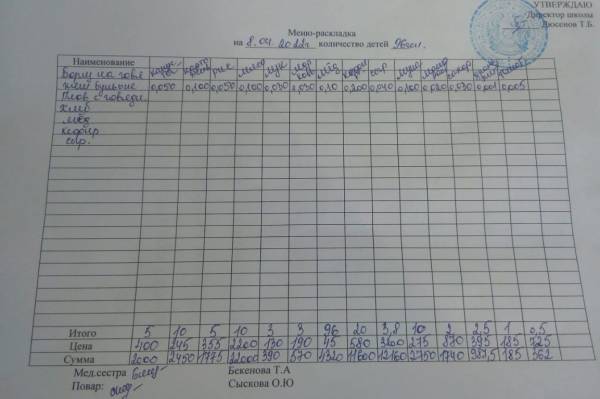 УТВЕРЖДАЮ
Директор школы
Дюсенов Т.Б.
Меню-раскладка
на 8.04 2022г количество детей 96чел.
Наименование капуста карт рис мясо мука мёд кефир сыр масло сахар
Борщ на говя
жем бульоне 0,050 0,100 0,050 0,100 0,030 0,030 0,10 0,200 0,040 0,100 0,020 0,030 0,001 0,005
Плов с говяди.
Хлеб
мёд
кефир
сыр.
Итого 5 10 5 10 3 3 96 20 3,8 10 2 2,5 1 0,5
Цена 400 245 355 2200 130 190 45 580 3200 275 870 395 185 725
Сумма 2000 2450 1775 22000 390 570 4320 11600 12160 2750 1740 987,5 185 362
Мед.сестра Бекенова Т.А
Повар: Сыскова О.Ю